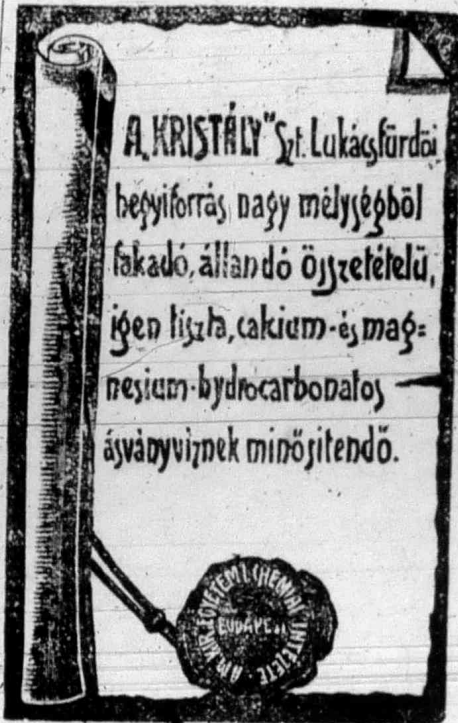 A „KRISTÁLY” Szt. Lukácsfürdői
hegyiforrás nagy mélységből
fakadó, állandó összetételű,
igen tiszta, calcium- és mag=
nesium-hydrocarbonatos
ásványvíznek minősítendő.
A M. KIR. EGYETEMI CHEMIAI INTÉZETE
BUDAPEST